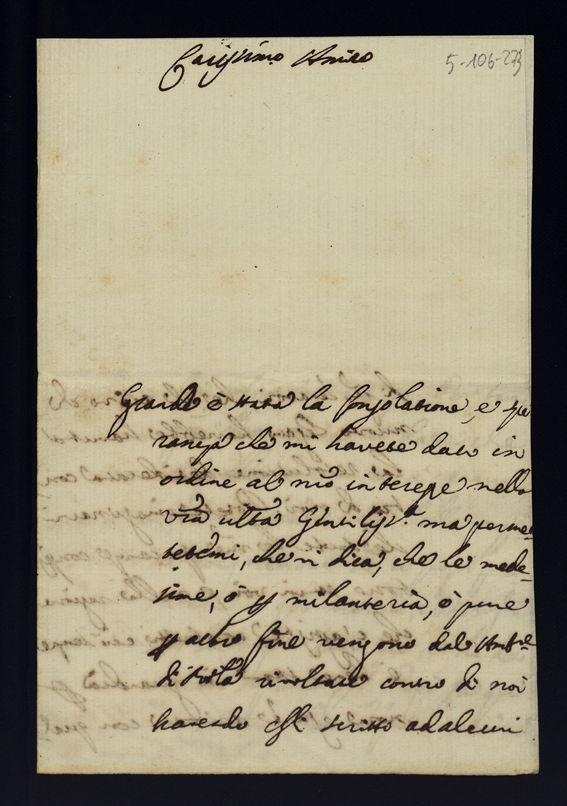 Carissimo Amico
5-106-273
Grande è stata la consolatione, e spe
ranza che mi havete dato in
ordine al nro interesse nella
vra ultã Gentiliss.ᵃ ma perme-
tetemi, che vi dica, che le mede-
sime, ò p milanteria, ò pure
p altro fine vengono dal Amb.ᵉ
di rivoltate contro di noi
havendo egli scritto ad alcuni